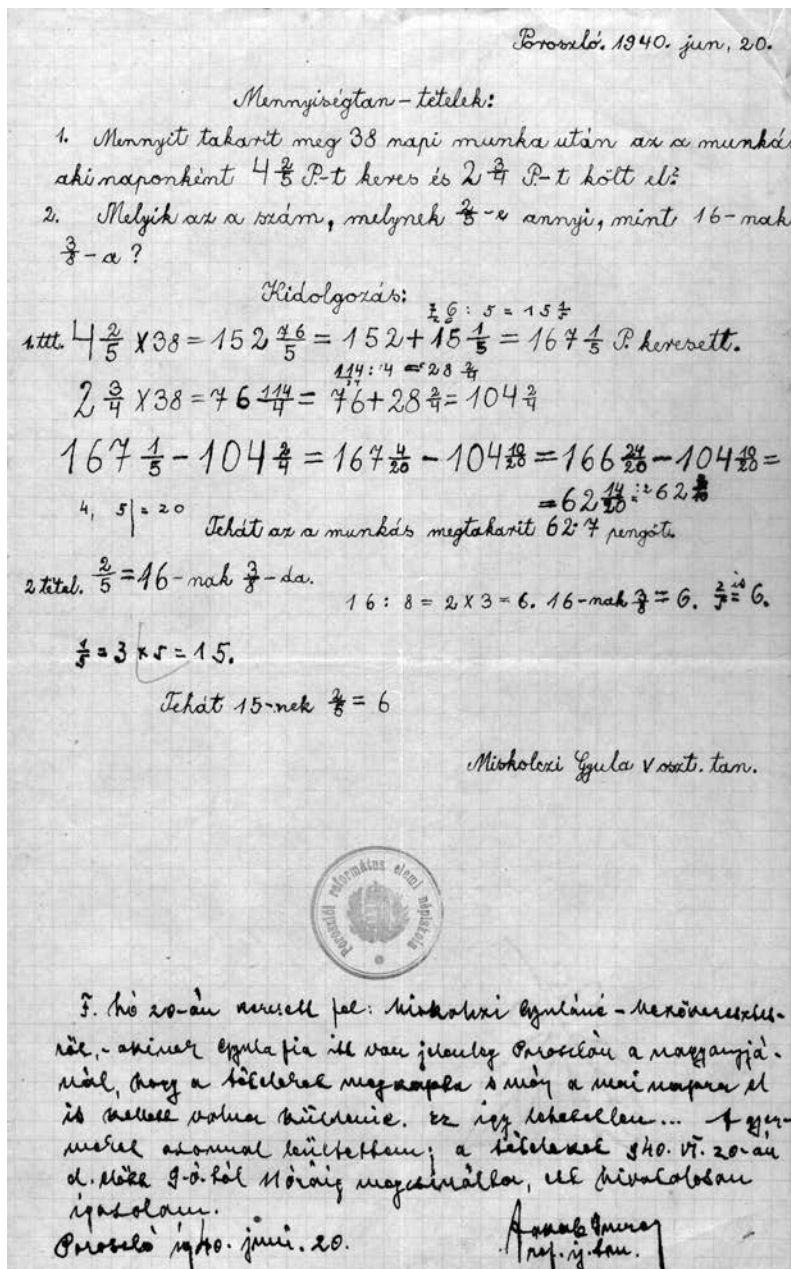 Poroszló. 1940. jun, 20.
Mennyiségtan-tételek:
1. Mennyit takarit meg 38 napi munka után az a munkás
aki naponként 4 2/5 P.-t keres és 2 3/4 P.-t költ el?
2. Melyik az a szám, melynek 2/5-e annyi, mint 16-nak
3/8-a?
Kidolgozás:
76 : 5 = 15 1/5
1. ttl. 4 2/5 X 38 = 152 76/5 = 152 + 15 1/5 = 167 1/5 P. keresett.
114 : 4 = 28 2/4
2 3/4 X 38 = 76 114/4 = 76 + 28 2/4 = 104 2/4
167 1/5 - 104 2/4 = 167 4/20 - 104 10/20 = 166 24/20 - 104 10/20 =
= 62 14/20 :2 62 7/10
4, 5 | = 20
Tehát az a munkás megtakarit 62·7 pengőt.
2 tétel. 2/5 = 16-nak 3/8-da.
16 : 8 = 2 X 3 = 6. 16-nak 3/8 = 6. 2/5 is = 6.
1/5 = 3 x 5 = 15.
Tehát 15-nek 2/5 = 6
Miskolczi Gyula V oszt. tan.
Poroszlói református elemi népiskola
F. hó 20-án keresett fel: Miskolczi Gyuláné - Mezőkeresztes-
ről, - akinek Gyula fia itt van jelenleg Poroszlón a nagyanyjá-
nál, hogy a tételeket megkapta s már a mai napra el
is kellett volna küldenie. Ez így lehetetlen... A gyer-
meket azonnal leültettem; a tételeket 940. VI. 20-án
d. előtt 9-ó.től 11 óráig megcsinálta, ezt hivatalosan
igazolom.
Poroszló 1940. juni. 20.
Imre
ref. ig. tan.